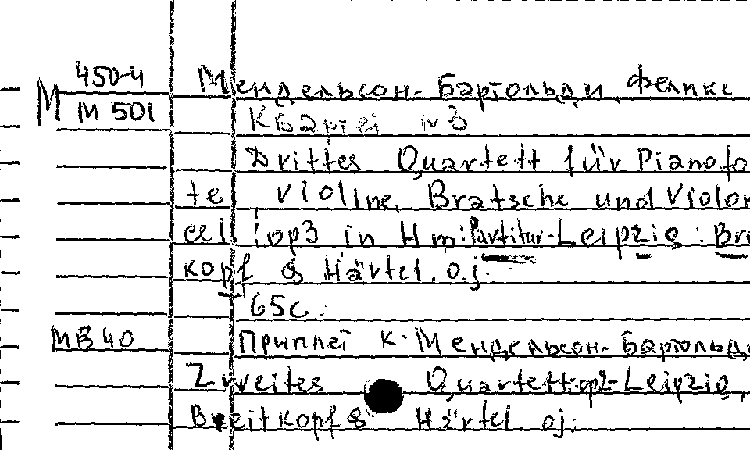 450-4
М М 501
Мендельсон-Бартольди, Феликс
Квартет №3
Drittes Quartett für Pianofo
te, Violine, Bratsche und Violon
cell: op3 in H m: Partitur-Leipzig: Bre
kopf & Härtel. o.j.
65c.
МВ 40 Приплет к: Мендельсон-Бартольд
Zweites Quartett: op2-Leipzig,
Breitkopf & Härtel. oj.